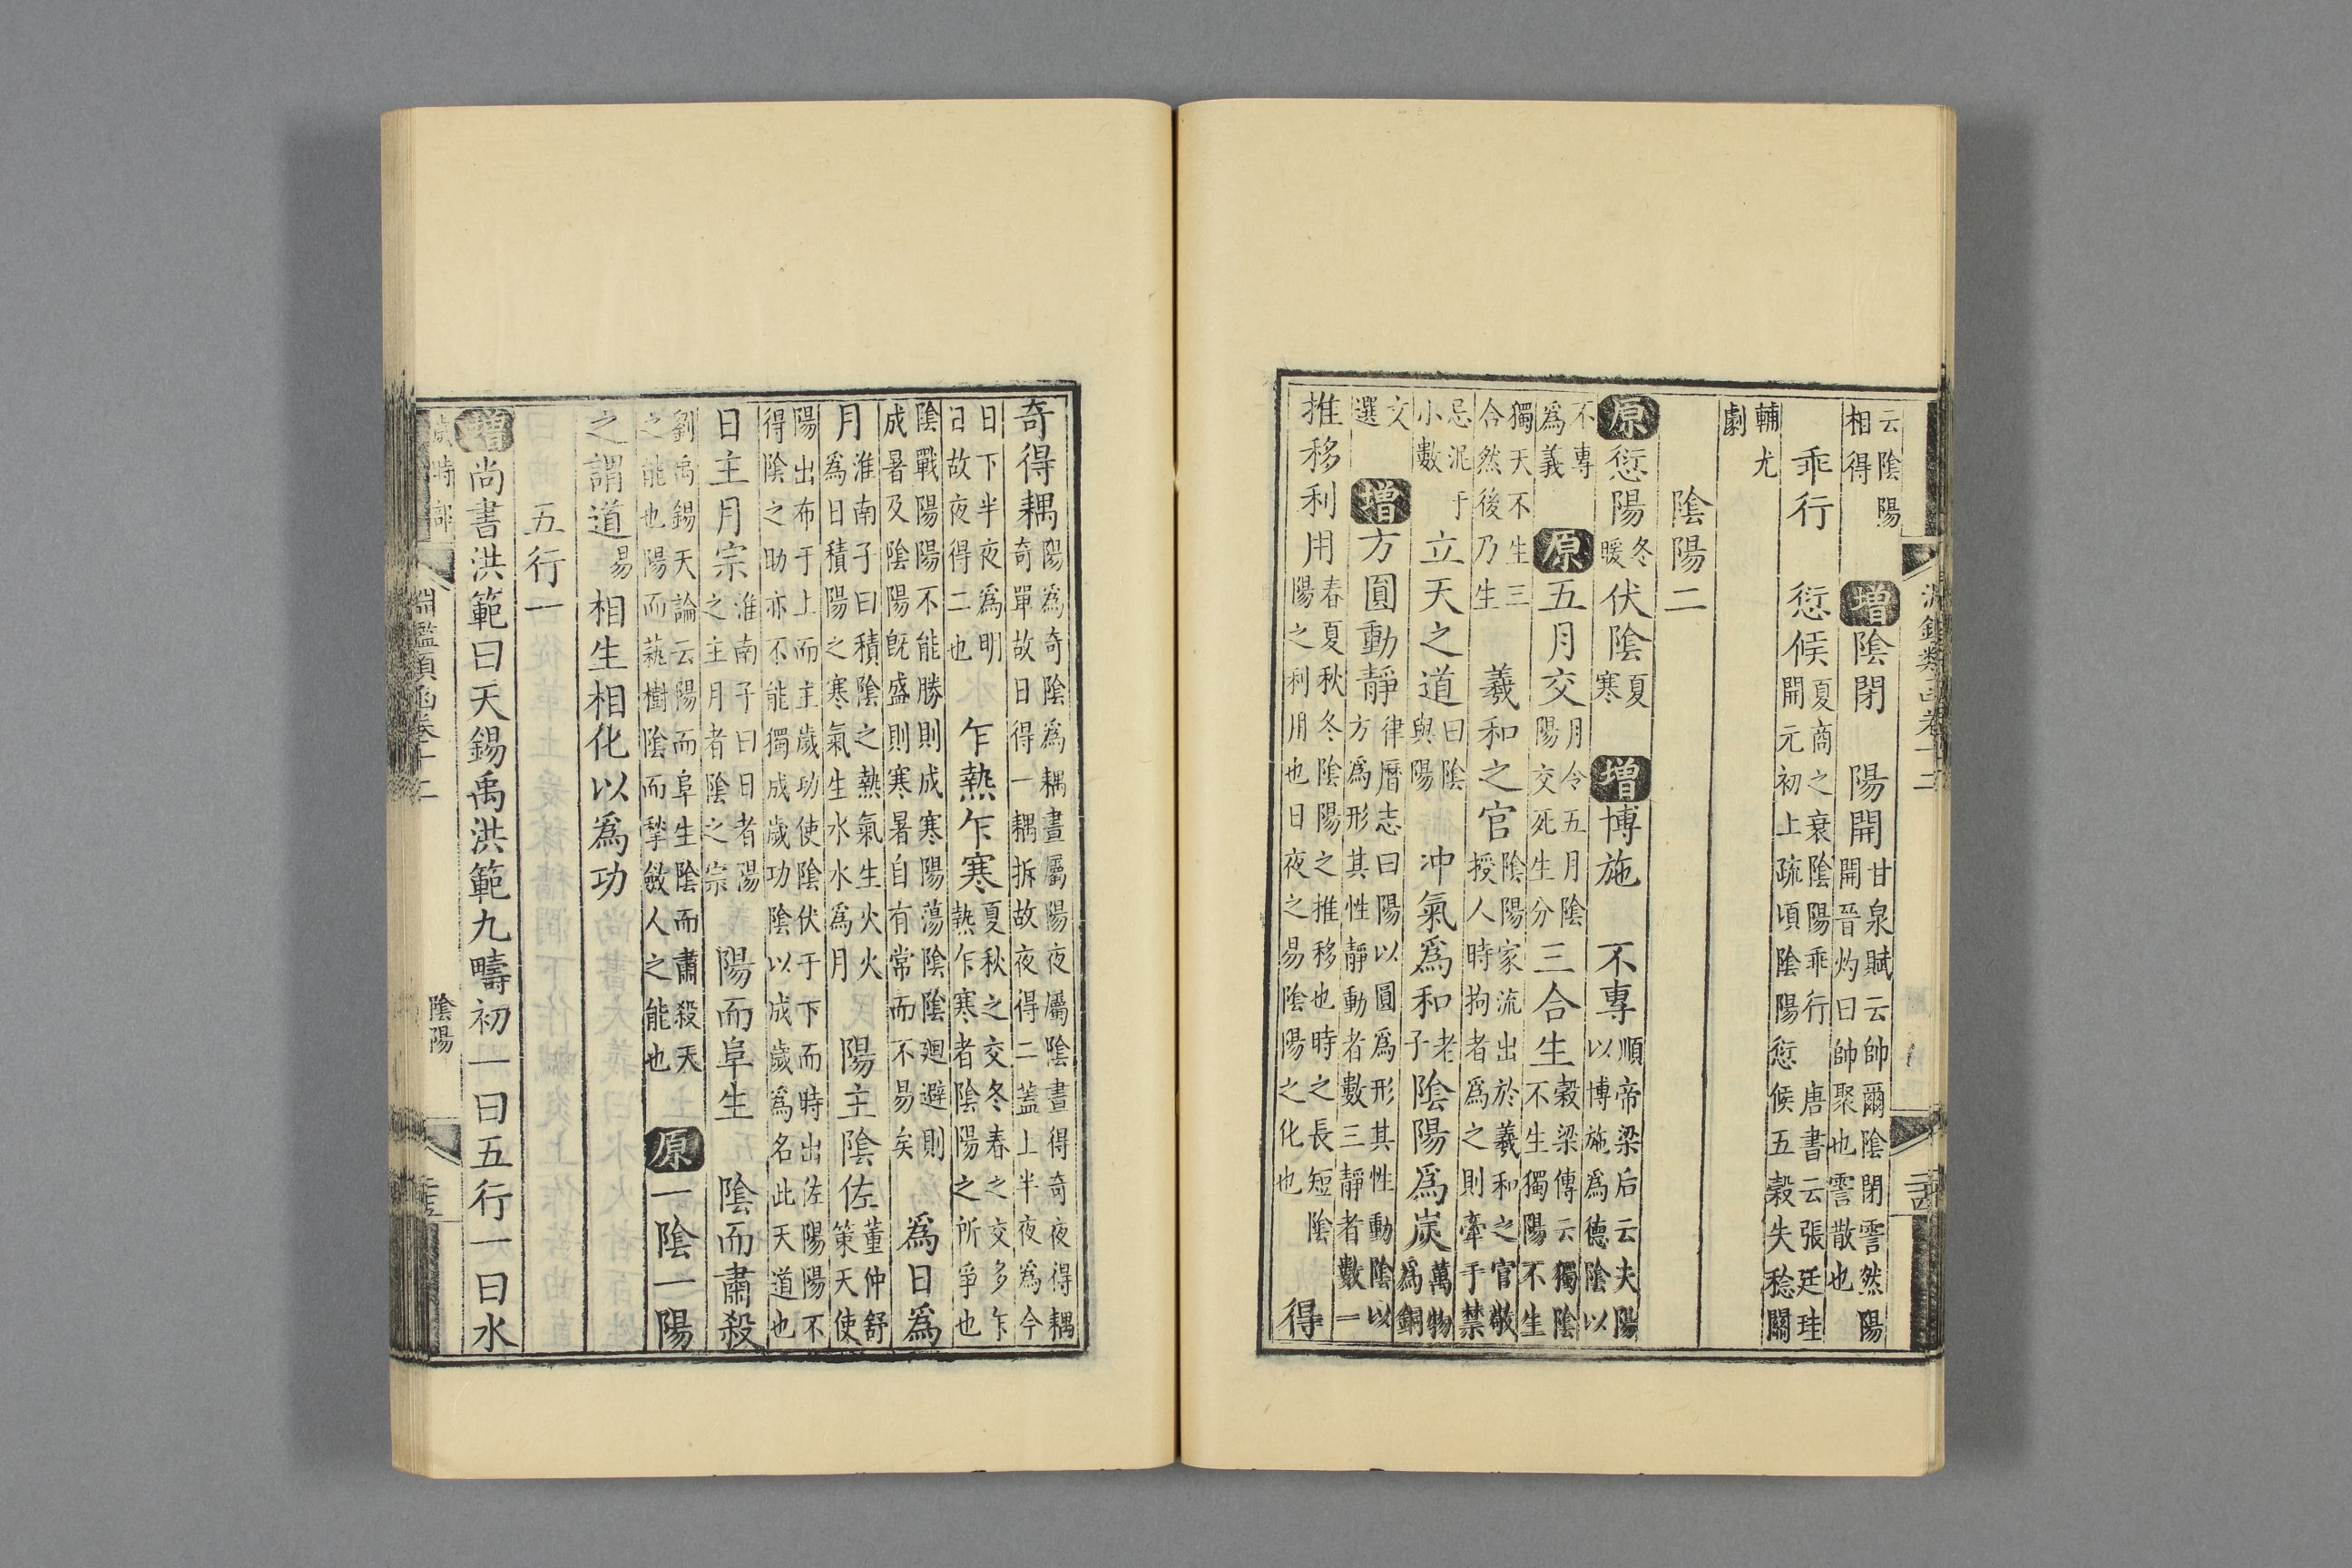 淵鑑類函卷十二
云陰陽相得 增陰閉 陽開甘泉賦云帥爾陰閉霅然陽開晉灼曰帥聚也霅散也
乖行 愆候夏商之衰陰陽乖行 唐書云張廷珪開元初上疏頃陰陽愆候五穀失稔關
輔尤劇
陰陽二
原愆陽冬暖伏陰夏寒 增博施 不專順帝梁后云夫陽以博施爲德陰以
不專爲義 原五月交月令五月陰陽交死生分 三合生穀梁傳云獨陰不生獨陽不生
獨天不生三合然後乃生 羲和之官陰陽家流出於羲和之官敬授人時拘者爲之則牽于禁
忌泥于小數 立天之道曰陰與陽 冲氣爲和老子 陰陽爲炭萬物爲銅
文選 增方圓動靜律曆志曰陽以圓爲形其性動陰以方爲形其性靜動者數三靜者數一
推移利用春夏秋冬陰陽之推移也時之長短陰陽之利用也日夜之易陰陽之化也 得
奇得耦陽爲奇陰爲耦晝屬陽夜屬陰晝得奇夜得耦奇單故日得一耦拆故夜得二蓋上半夜爲今
日下半夜爲明日故夜得二也 乍熱乍寒夏秋之交冬春之交多乍熱乍寒者陰陽之所爭也
陰戰陽陽不能勝則成寒陽蕩陰陰廻避則成暑及陰陽旣盛則寒暑自有常而不易矣 爲日爲
月淮南子曰積陰之熱氣生火火爲日積陽之寒氣生水水爲月 陽主陰佐董仲舒策天使
陽出布于上而主歲功使陰伏于下而時出佐陽陽不得陰之助亦不能獨成歲功陰以成歲爲名此天道也
日主月宗淮南子曰日者陽之主月者陰之宗 陽而阜生 陰而肅殺
劉禹錫天論云陽而阜生陰而肅殺天之能也陽而蓺樹陰而揫斂人之能也 原一陰一陽
之謂道易 相生相化以爲功
五行一
增尚書洪範曰天錫禹洪範九疇初一曰五行一曰水
歲時部 淵鑑類函卷十二 陰陽